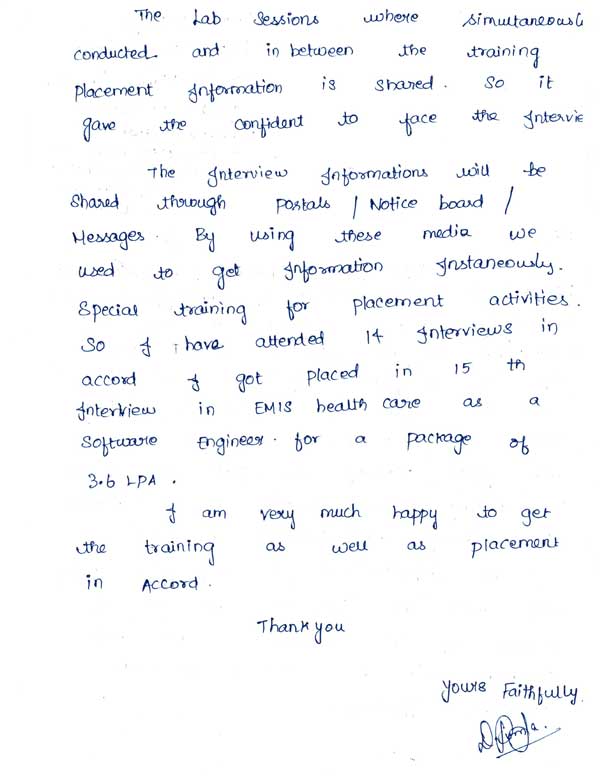 The Lab Sessions where simultaneousl
conducted. and in between the training
placement Information is shared. So it
gave the confident to face the Intervie
The Interview Informations will be
Shared through Postals / Notice board /
Messages. By using these media we
used to get Information Instaneously.
Special training for placement activities.
So I have attended 14 Interviews in
accord I got placed in 15 th
Interview in EMIS health care as a
Software Engineer. for a package of
3.6 LPA.
I am very much happy to get
the training as well as placement
in Accord.
Thank you
yours Faithfully